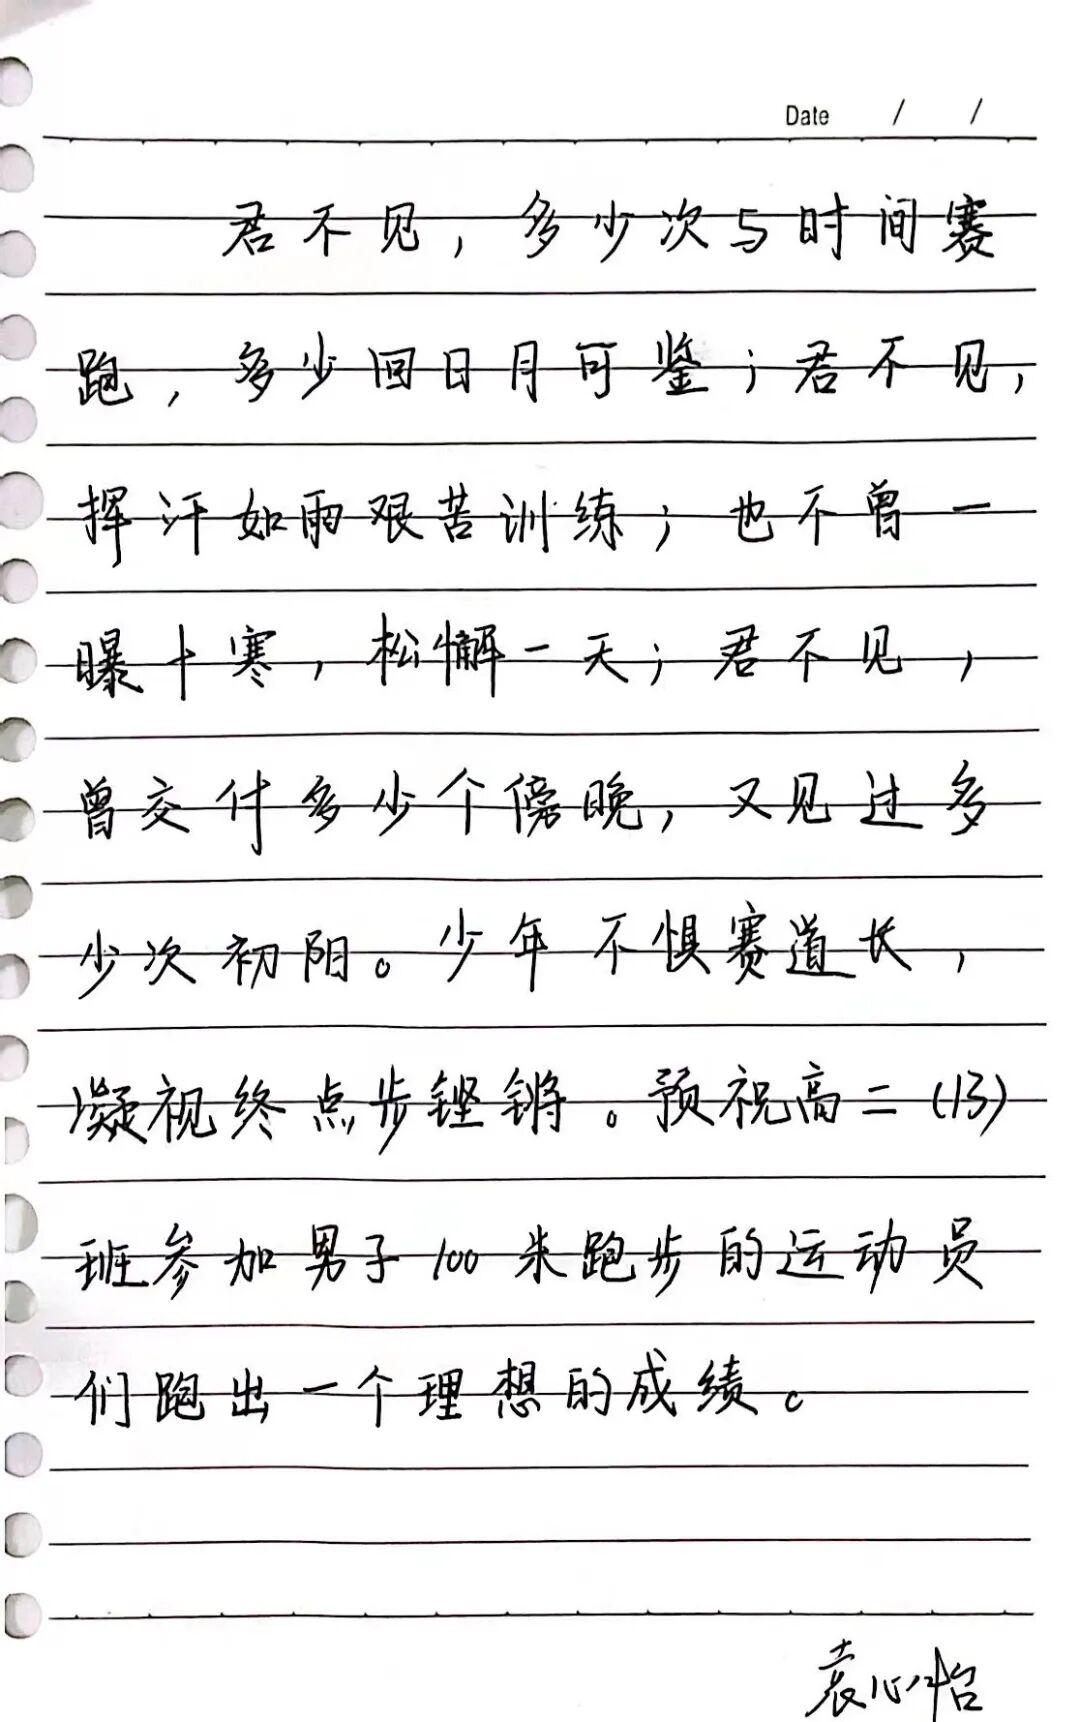 Date / /
君不见，多少次与时间赛
跑，多少回日月可鉴；君不见，
挥汗如雨艰苦训练；也不曾一
曝十寒，松懈一天；君不见，
曾交付多少个傍晚，又见过多
少次初阳。少年不惧赛道长，
凝视终点步铿锵。预祝高二（13）
班参加男子100米跑步的运动员
们跑出一个理想的成绩。
袁心怡